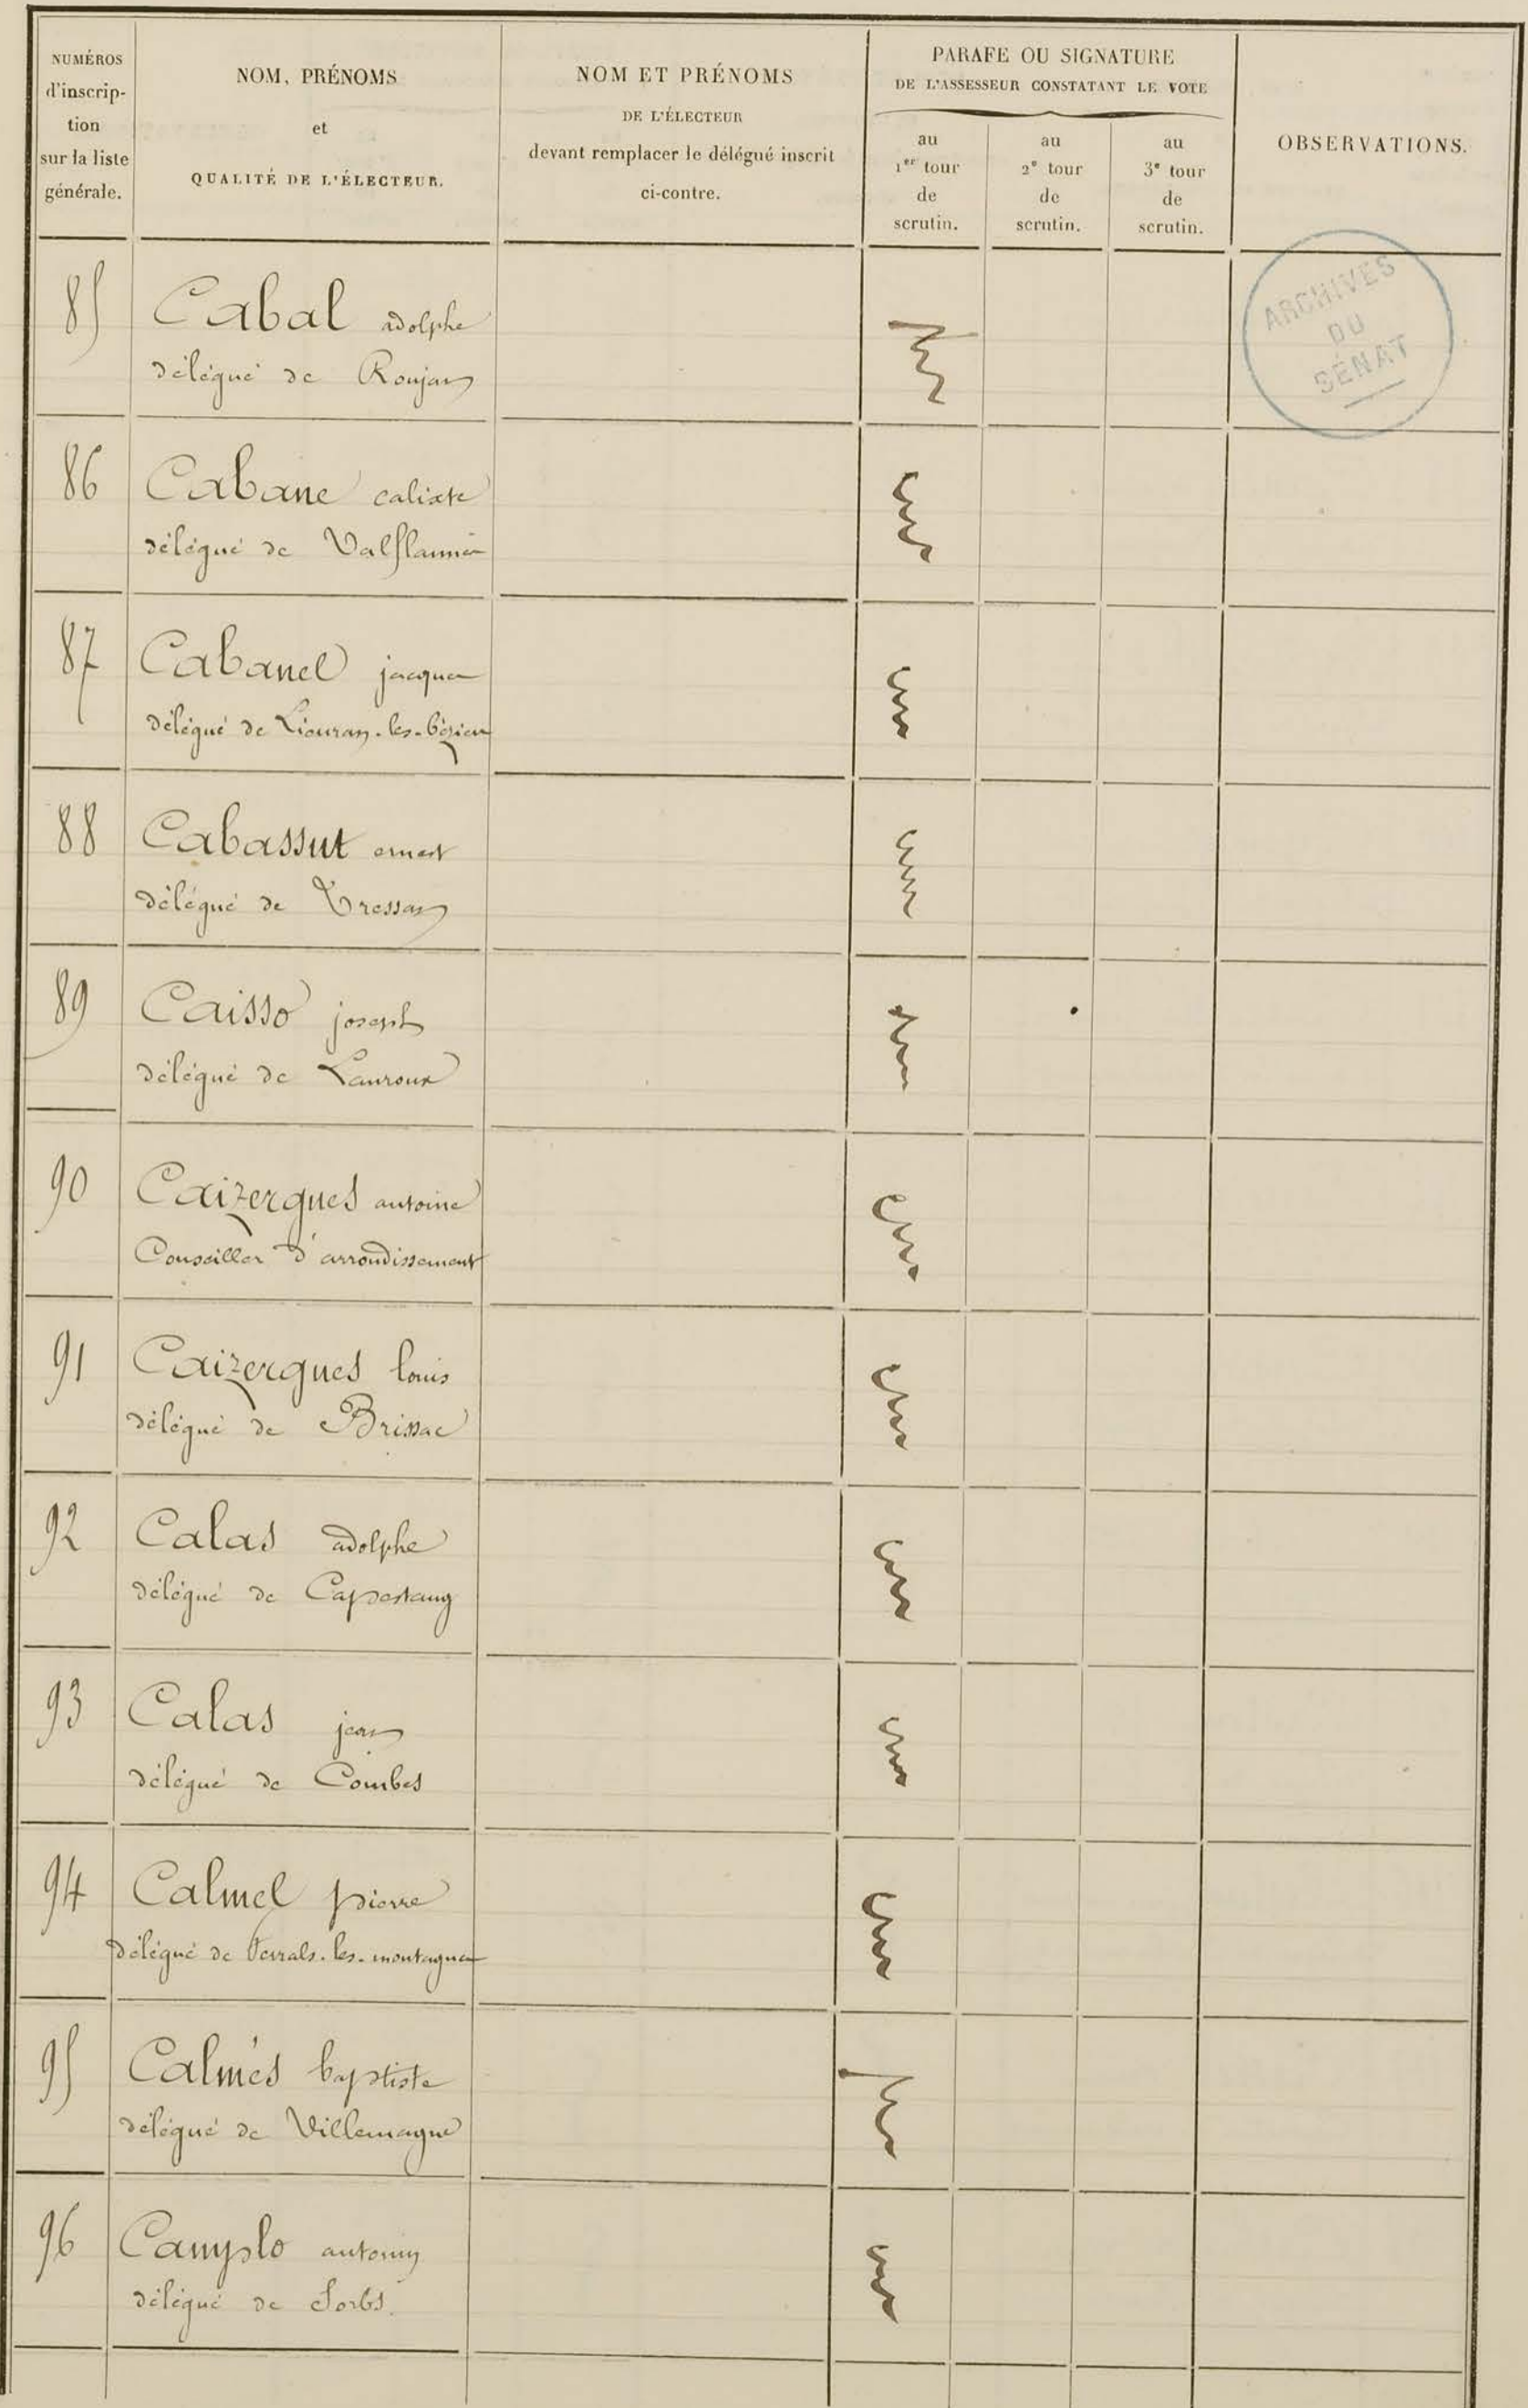 NUMÉROS
d'inscrip-
tion
sur la liste
générale.
NOM, PRÉNOMS
et
QUALITÉ DE L'ÉLECTEUR.
NOM ET PRÉNOMS
DE L'ÉLECTEUR
devant remplacer le délégué inscrit
ci-contre.
PARAFE OU SIGNATURE
DE L'ASSESSEUR CONSTATANT LE VOTE
au
1er tour
de
scrutin.
au
2e tour
de
scrutin.
au
3e tour
de
scrutin.
OBSERVATIONS.
ARCHIVES
DU
SÉNAT
85 Cabal adolphe
délégué de Roujan
86 Cabane calixte
délégué de Valflaunès
87 Cabanel jacques
délégué de Lieuran-les-béziers
88 Cabassut ernest
délégué de Tressan
89 Caisso joseph
délégué de Lauroux
90 Caizergues antoine
Conseiller d'arrondissement
91 Caizergues louis
délégué de Brissac
92 Calas adolphe
délégué de Capestang
93 Calas jean
délégué de Combes
94 Calmel pierre
délégué de ferrals-les-montagnes
95 Calmés baptiste
délégué de Villemagne
96 Camplo antonin
délégué de Sorbs.